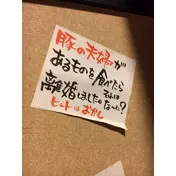 豚の夫婦が
あるものを食べたら
離婚しました。それは
なぁに?
ヒントはおかし